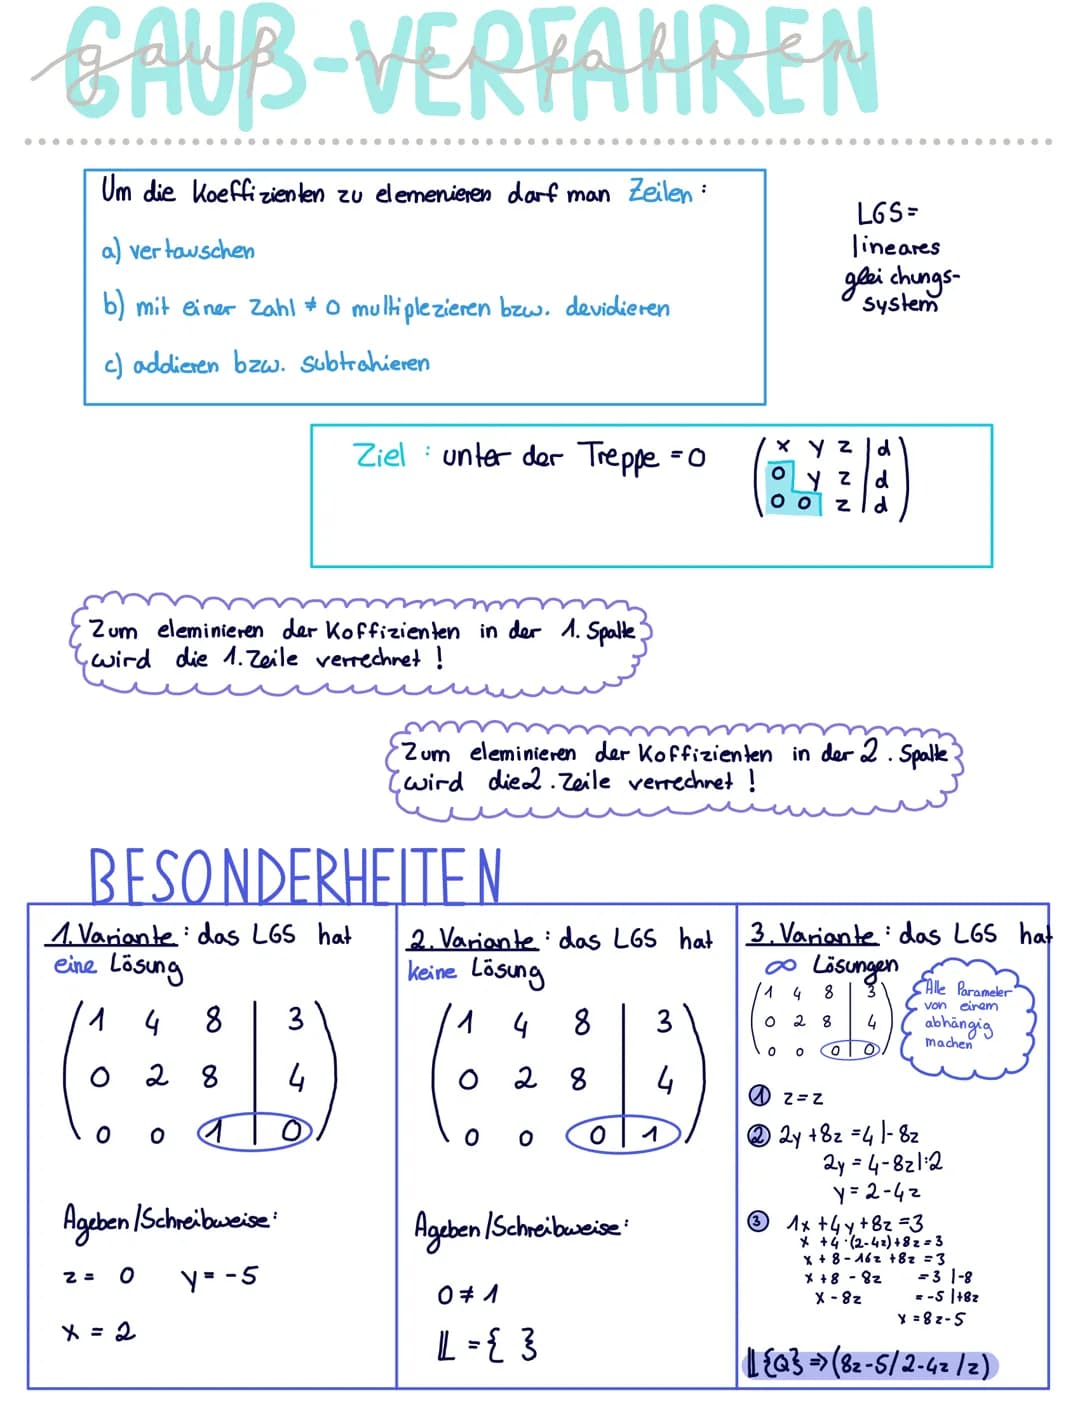 GAUß-VERFAHREN
gauß-verfahren
Um die Koeffizienten zu elemenieren darf man Zeilen:
a) vertauschen
b) mit einer Zahl ≠ 0 multiplezieren bzw. devidieren
c) addieren bzw. subtrahieren
LGS=
lineares
gleichungs-
system
Ziel : unter der Treppe = 0
x y z | d
0 y z | d
0 0 z | d
Zum eleminieren der Koffizienten in der 1. Spalte
wird die 1. Zeile verrechnet !
Zum eleminieren der Koffizienten in der 2. Spalte
wird die 2. Zeile verrechnet !
BESONDERHEITEN
1. Variante : das LGS hat
eine Lösung
1 4 8 | 3
0 2 8 | 4
0 0 1 | 0
Ageben/Schreibweise:
z = 0 y = -5
x = 2
2. Variante : das LGS hat
keine Lösung
1 4 8 | 3
0 2 8 | 4
0 0 0 | 1
Ageben/Schreibweise:
0 ≠ 1
𝕃 = { }
3. Variante : das LGS hat
∞ Lösungen
1 4 8 | 3
0 2 8 | 4
0 0 0 | 0
Alle Parameler
von einem
abhängig
machen
① z = z
② 2y + 8z = 4 | - 8z
2y = 4 - 8z | :2
y = 2 - 4z
③ 1x + 4y + 8z = 3
x + 4 · (2-4z) + 8z = 3
x + 8 - 16z + 8z = 3
x + 8 - 8z = 3 | -8
x - 8z = -5 | +8z
x = 8z - 5
𝕃 {Q} => (8z-5 / 2-4z / z)